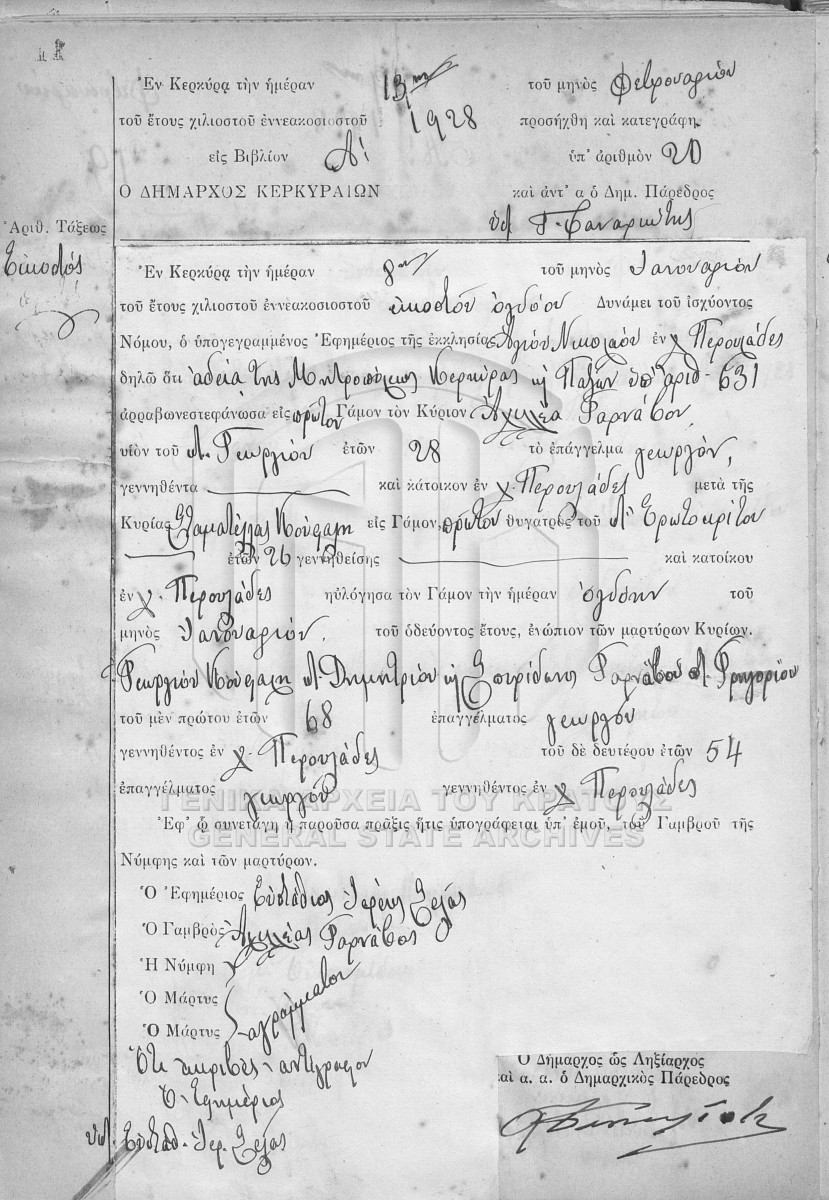 Ἐν Κερκύρᾳ τὴν ἡμέραν 13ην τοῦ μηνὸς Φεβρουαρίου
τοῦ ἔτους χιλιοστοῦ ἐννεακοσιοστοῦ 1928 προσήχθη καὶ κατεγράφη
εἰς Βιβλίον Α' ὑπ' ἀριθμὸν 20
Ο ΔΗΜΑΡΧΟΣ ΚΕΡΚΥΡΑΙΩΝ καὶ ἀντ' α ὁ Δημ. Πάρεδρος
Ἀριθ. Τάξεως
Εἰκοστός
Ἐν Κερκύρᾳ τὴν ἡμέραν 8ην τοῦ μηνὸς Ἰανουαρίου
τοῦ ἔτους χιλιοστοῦ ἐννεακοσιοστοῦ εἰκοστοῦ ὀγδόου Δυνάμει τοῦ ἰσχύοντος
Νόμου, ὁ ὑπογεγραμμένος Ἐφημέριος τῆς ἐκκλησίας Ἁγίου Νικολάου ἐν χ. Περουλάδες
δηλῶ ὅτι ἀδείᾳ τῆς Μητροπόλεως Κερκύρας κ Παξῶν ὑπ' ἀριθ. 631
ἀρραβωνεστεφάνωσα εἰς πρῶτον Γάμον τὸν Κύριον Ἀχιλλέα Γαρνάβον
υἱὸν τοῦ π. Γεωργίου ἐτῶν 28 τὸ ἐπάγγελμα γεωργόν,
γεννηθέντα καὶ κάτοικον ἐν χ. Περουλάδες μετὰ τῆς
Κυρίας Σταματέλλας Κούσαλη εἰς Γάμον, πρῶτον θυγατρὸς τοῦ π. Ἐρωτοκρίτου
ἐτῶν 26 γεννηθείσης καὶ κατοίκου
ἐν χ. Περουλάδες ηὐλόγησα τὸν Γάμον τὴν ἡμέραν ὀγδόην τοῦ
μηνὸς Ἰανουαρίου. τοῦ ὁδεύοντος ἔτους, ἐνώπιον τῶν μαρτύρων Κυρίων.
Γεωργίου Κούσαλη π. Δημητρίου κ Σπυρίδωνος Γαρνάβου π. Γρηγορίου
τοῦ μὲν πρώτου ἐτῶν 68 ἐπαγγέλματος γεωργοῦ
γεννηθέντος ἐν χ. Περουλάδες τοῦ δὲ δευτέρου ἐτῶν 54
ἐπαγγέλματος γεωργοῦ γεννηθέντος ἐν χ. Περουλάδες
ΓΕΝΙΚΑ ΑΡΧΕΙΑ ΤΟΥ ΚΡΑΤΟΥΣ
Ἐφ' ᾧ συνετάγη ἡ παροῦσα πρᾶξις ἥτις ὑπογράφεται ὑπ' ἐμοῦ, τοῦ Γαμβροῦ τῆς
GENERAL STATE ARCHIVES
Νύμφης καὶ τῶν μαρτύρων.
Ὁ Ἐφημέριος Εὐστάθιος Ἱερεὺς
Ὁ Γαμβρὸς Ἀχιλλέας Γαρνάβος
Ἡ Νύμφη
Ὁ Μάρτυς ἀγράμματοι
Ὁ Μάρτυς
Ὅτι ἀκριβὲς ἀντίγραφον
Ὁ Ἐφημέριος
Εὐσταθ. Ἱερ.
Ὁ Δήμαρχος ὡς Ληξίαρχος
καὶ α. α. ὁ Δημαρχικὸς Πάρεδρος